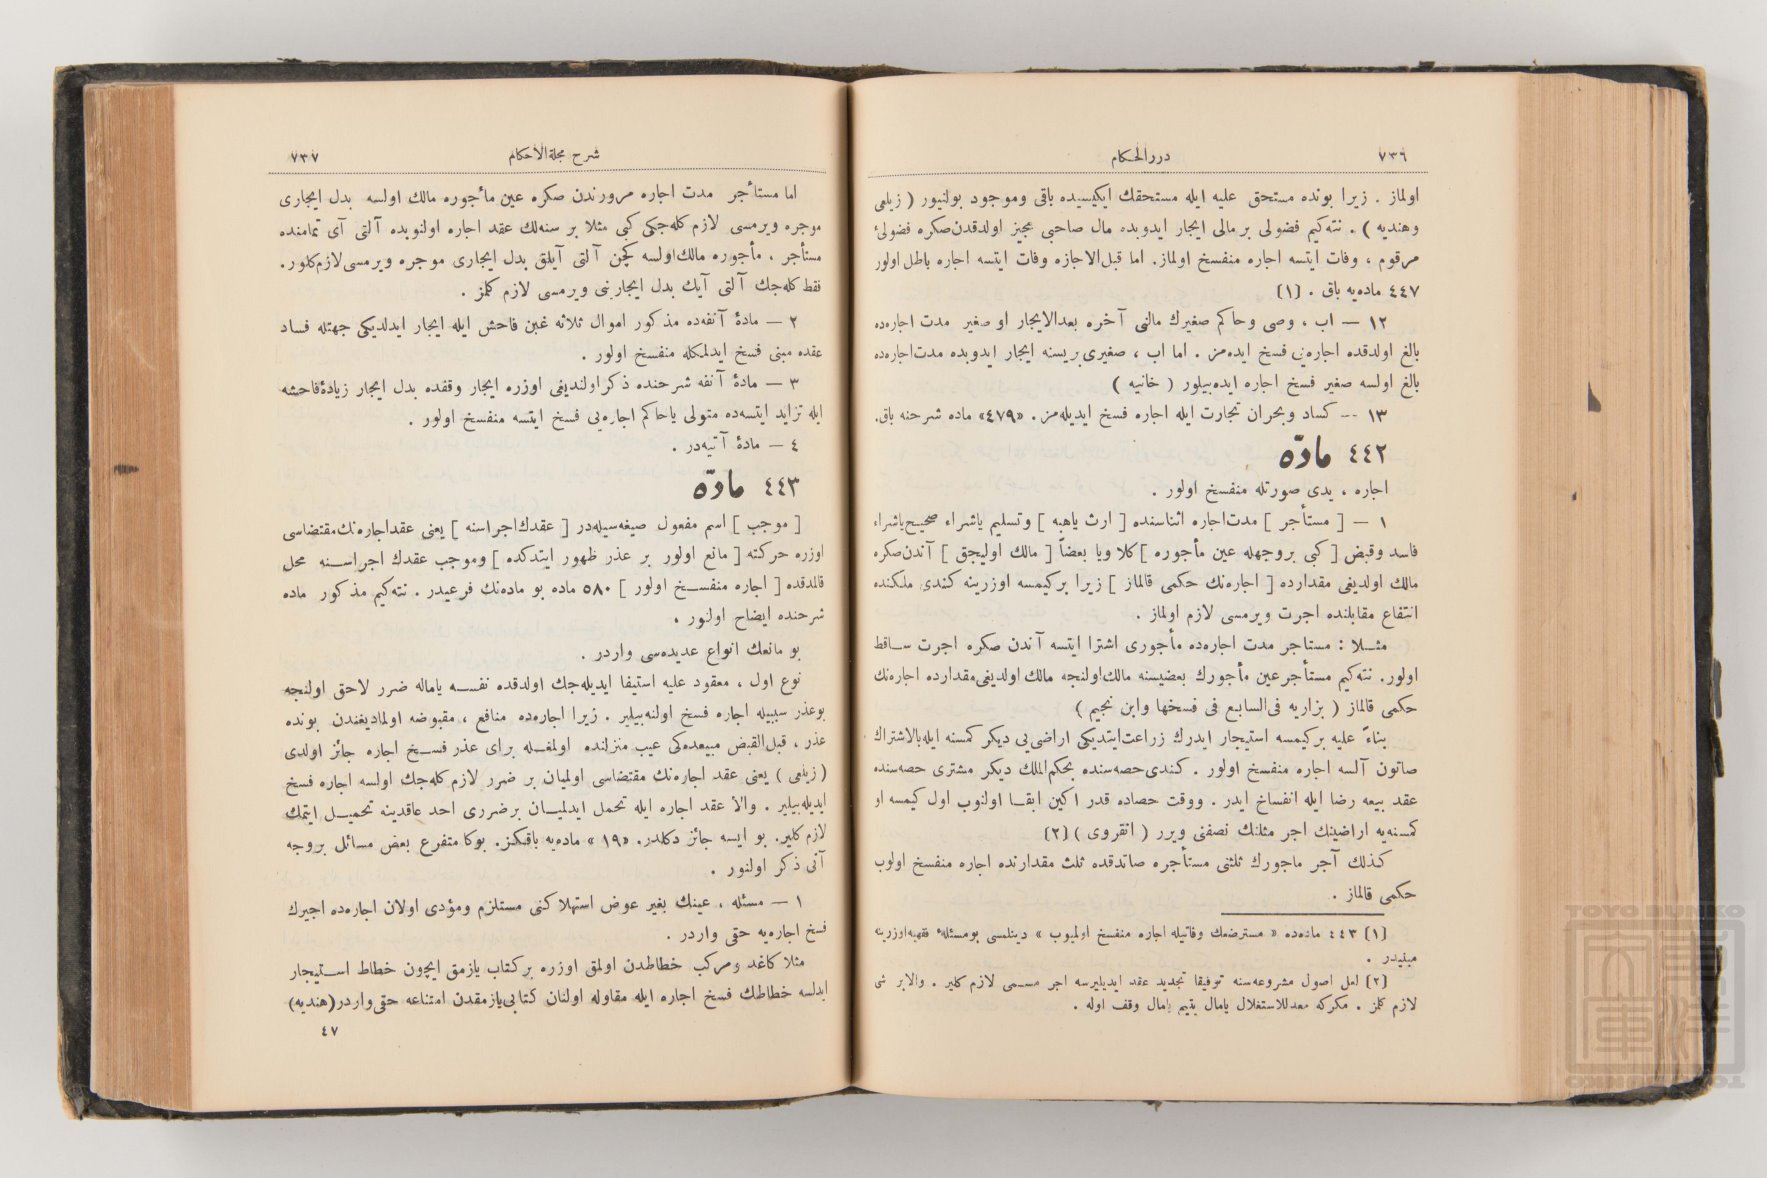 ٧٣٦
دررالحكام
اولماز . زيرا بونده مستحق عليه ايله مستحقك ايكيسيده باقى وموجود بولنيور ( زيلعى
وهنديه ) . نته‌كيم فضولى برمالى ايجار ايدوبده مال صاحبى مجيز اولدقدن‌صكره فضولئ
مرقوم ، وفات ايتسه اجاره منفسخ اولماز. اما قبل‌الاجازه وفات ايتسه اجاره باطل اولور
٤٤٧ ماده‌يه باق . (١)
١٢ — اب ، وصى وحاكم صغيرك مالنى آخره بعدالايجار او صغير مدت اجاره‌ده
بالغ اولدقده اجاره‌يى فسخ ايده‌مز . اما اب ، صغيرى بريسنه ايجار ايدوبده مدت‌اجاره‌ده
بالغ اولسه صغير فسخ اجاره ايده‌بيلور ( خانيه )
١٣ — كساد وبحران تجارت ايله اجاره فسخ ايديله‌مز. «٤٧٩» ماده شرحنه باق.
٤٤٢ مادّه
اجاره ، يدى صورتله منفسخ اولور .
١ — [ مستأجر ] مدت‌اجاره اثناسنده [ ارث ياهبه ] وتسليم ياشراء صحيح‌ياشراء
فاسد وقبض [ كبى بروجهله عين مأجوره ] كلا ويا بعضاً [ مالك اوليجق ] آندن‌صكره
مالك اولديغى مقدارده [ اجاره‌نك حكمى قالماز ] زيرا بركيمسه اوزرينه كندى ملكنده
انتفاع مقابلنده اجرت ويرمسى لازم اولماز .
مثلا : مستاجر مدت اجاره‌ده مأجورى اشترا ايتسه آندن صكره اجرت ساقط
اولور. نته‌كيم مستأجرعين مأجورك بعضيسنه مالك‌اولنجه مالك اولديغى‌مقدارده اجاره‌نك
حكمى قالماز ( بزازيه فى‌السابع فى فسخها وابن نجيم )
بناءً عليه بركيمسه استيجار ايدرك زراعت‌ايتديكى اراضى‌يى ديكر كمسنه ايله‌بالاشتراك
صاتون آلسه اجاره منفسخ اولور . كندى‌حصه‌سنده بحكم‌الملك ديكر مشترى حصه‌سنده
عقد بيعه رضا ايله انفساخ ايدر . ووقت حصاده قدر اكين ابقا اولنوب اول كيمسه او
كمسنه‌يه اراضينك اجر مثلنك نصفنى ويرر ( انقروى ) (٢)
كذلك آجر ماجورك ثلثنى مستأجره صاتدقده ثلث مقدارنده اجاره منفسخ اولوب
حكمى قالماز .
(١) ٤٤٣ ماده‌ده « مسترضعك وفاتيله اجاره منفسخ اولميوب » دينلمسى بومسئلهٔ فقهيه‌اوزرينه
مبنيدر .
(٢) لعل اصول مشروعه‌سنه توفيقا تجديد عقد ايديليرسه اجر مسمى لازم كلير . والابر شى
لازم كلمز . مكركه معدللاستغلال يامال يتيم يامال وقف اوله .
شرح مجلةالاحكام
٧٣٧
اما مستأجر مدت اجاره مرورندن صكره عين مأجوره مالك اولسه بدل ايجارى
موجره ويرمسى لازم كله‌جكى كبى مثلا بر سنه‌لك عقد اجاره اولنوبده آلتى آى تمامنده
مستأجر ، مأجوره مالك‌اولسه كچن آلتى آيلق بدل ايجارى موجره ويرمسى لازم‌كلور.
فقط كله‌جك آلتى آيك بدل ايجارينى ويرمسى لازم كلمز .
٢ — مادهٔ آنفه‌ده مذكور اموال ثلاثه غبن فاحش ايله ايجار ايدلديكى جهتله فساد
عقده مبنى فسخ ايدلمكله منفسخ اولور .
٣ — مادهٔ آنفه شرحنده ذكراولنديغى اوزره ايجار وقفده بدل ايجار زيادهٔ‌فاحشه
ايله تزايد ايتسه‌ده متولى ياحاكم اجاره‌يى فسخ ايتسه منفسخ اولور .
٤ — مادهٔ آتيه‌در .
٤٤٣ مادّه
[ موجب ] اسم مفعول صيغه‌سيله‌در [ عقدك‌اجراسنه ] يعنى عقداجاره‌نك‌مقتضاسى
اوزره حركته [ مانع اولور بر عذر ظهور ايتدكده ] وموجب عقدك اجراسنه محل
قالمدقده [ اجاره منفسخ اولور ] ٥٨٠ ماده بو ماده‌نك فرعيدر . نته‌كيم مذكور ماده
شرحنده ايضاح اولنور .
بو مانعك انواع عديده‌سى واردر .
نوع اول ، معقود عليه استيفا ايديله‌جك اولدقده نفسه ياماله ضرر لاحق اولنجه
بوعذر سببيله اجاره فسخ اولنه‌بيلير . زيرا اجاره‌ده منافع ، مقبوضه اولماديغندن بونده
عذر ، قبل‌القبض مبيعده‌كى عيب منزلنده اولمغله براى عذر فسخ اجاره جائز اولدى
( زيلعى ) يعنى عقد اجاره‌نك مقتضاسى اولميان بر ضرر لازم كله‌جك اولسه اجاره فسخ
ايديله‌بيلير . والا عقد اجاره ايله تحمل ايدلميان برضررى احد عاقدينه تحميل ايتمك
لازم كلير. بو ايسه جائز دكلدر. «١٩» ماده‌يه باقيكز. بوكا متفرع بعض مسائل بروجه
آتى ذكر اولنور .
١ — مسئله ، عينك بغير عوض استهلاكنى مستلزم ومؤدى اولان اجاره‌ده اجيرك
فسخ اجاره‌يه حقى واردر .
مثلا كاغد ومركب خطاطدن اولمق اوزره بركتاب يازمق ايچون خطاط استيجار
ايدلسه خطاطك فسخ اجاره ايله مقاوله اولنان كتابى‌يازمقدن امتناعه حقى‌واردر(هنديه)
٤٧
TOYO BUNKO